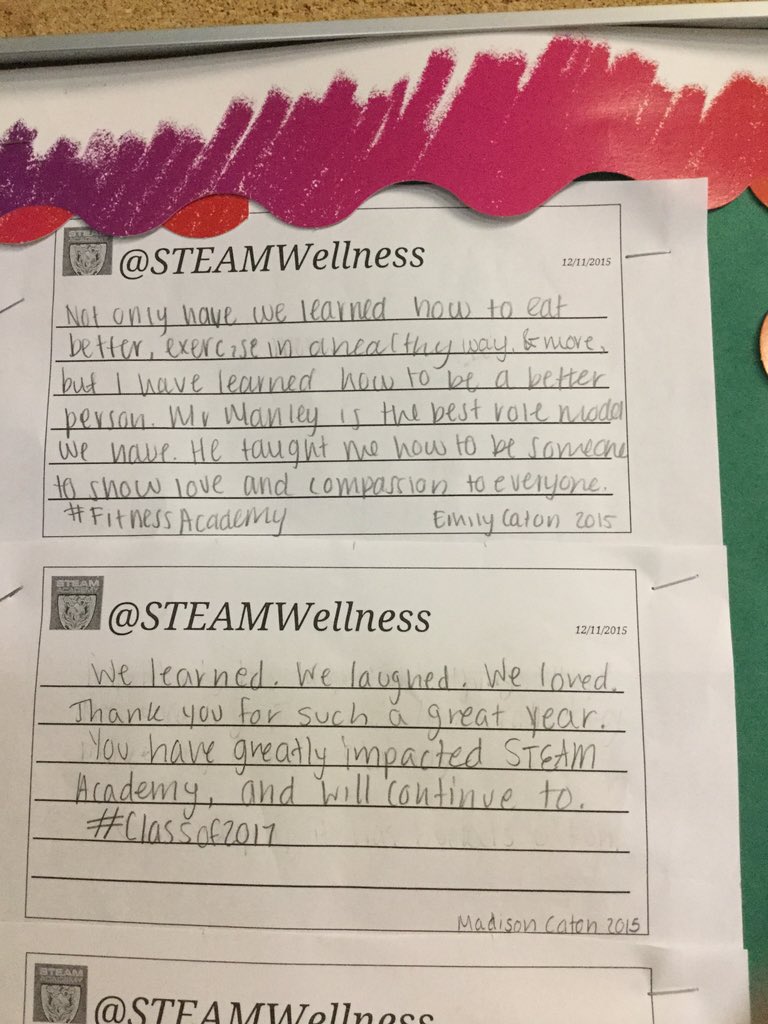 @STEAMWellness
12/11/2015
Not only have we learned how to eat
better, exercise in a healthy way, & more,
but I have learned how to be a better
person. Mr Manley is the best role model
we have. He taught me how to be someone
to show love and compassion to everyone.
#FitnessAcademy Emily Caton 2015
STEAM
ACADEMY
@STEAMWellness
12/11/2015
We learned. We laughed. We loved.
Thank you for such a great year.
You have greatly impacted STEAM
Academy, and will continue to.
#Classof2017
Madison Caton 2015
STEAM
ACADEMY
@STEAMWellness